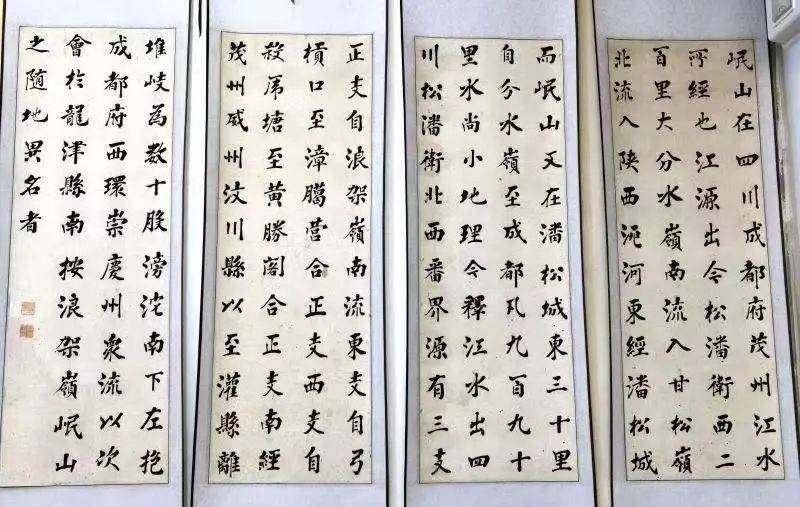 岷山在四川成都府茂州江水
所經也江源出今松潘衛西二
百里大分水嶺南流入甘松嶺
北流入陝西洮河東經潘松城
而岷山又在潘松城東三十里
自分水嶺至成都凡九百九十
里水尚小地理今釋江水出四
川松潘衛北西番界源有三支
正支自浪架嶺南流東支自弓
槓口至漳臘營合正支西支自
殺馬塘至黃勝閣合正支南經
茂州威州汶川縣以至灌縣離
堆岐為數十股滂沱南下左抱
成都府西環崇慶州衆流以次
會於龍津縣南按浪架嶺岷山
之隨地異名者